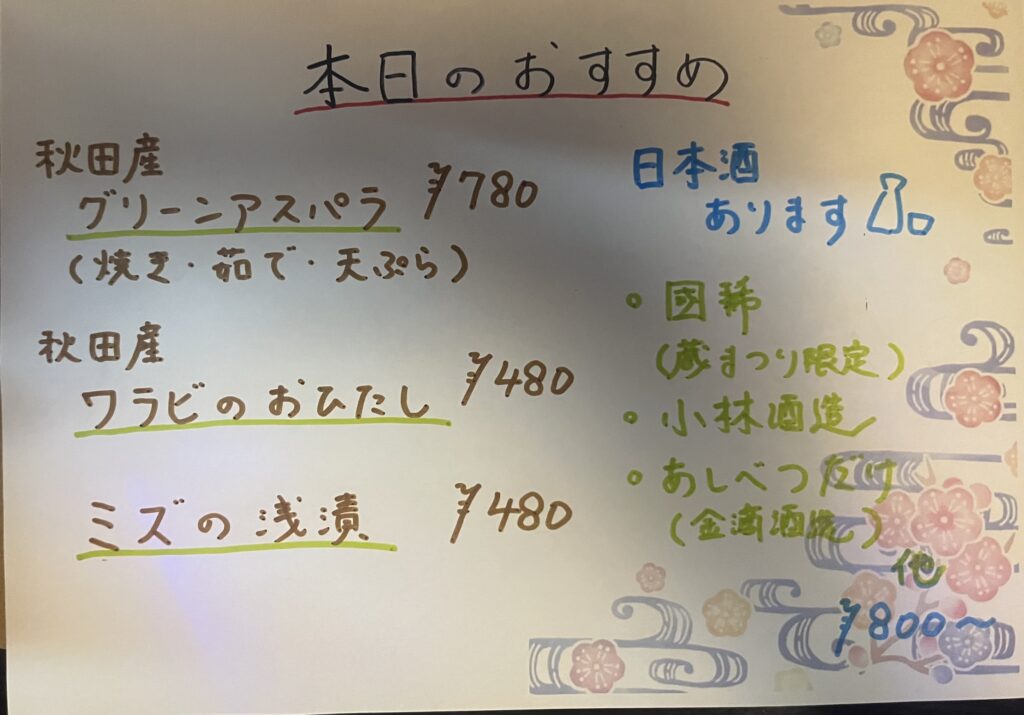 本日のおすすめ
秋田産
グリーンアスパラ ¥780
(焼き・茹で・天ぷら)
秋田産
ワラビのおひたし ¥480
ミズの浅漬 ¥480
日本酒
あります
・国稀
(蔵まつり限定)
・小林酒造
・あしべつだけ
(金滴酒造)
他
¥800～